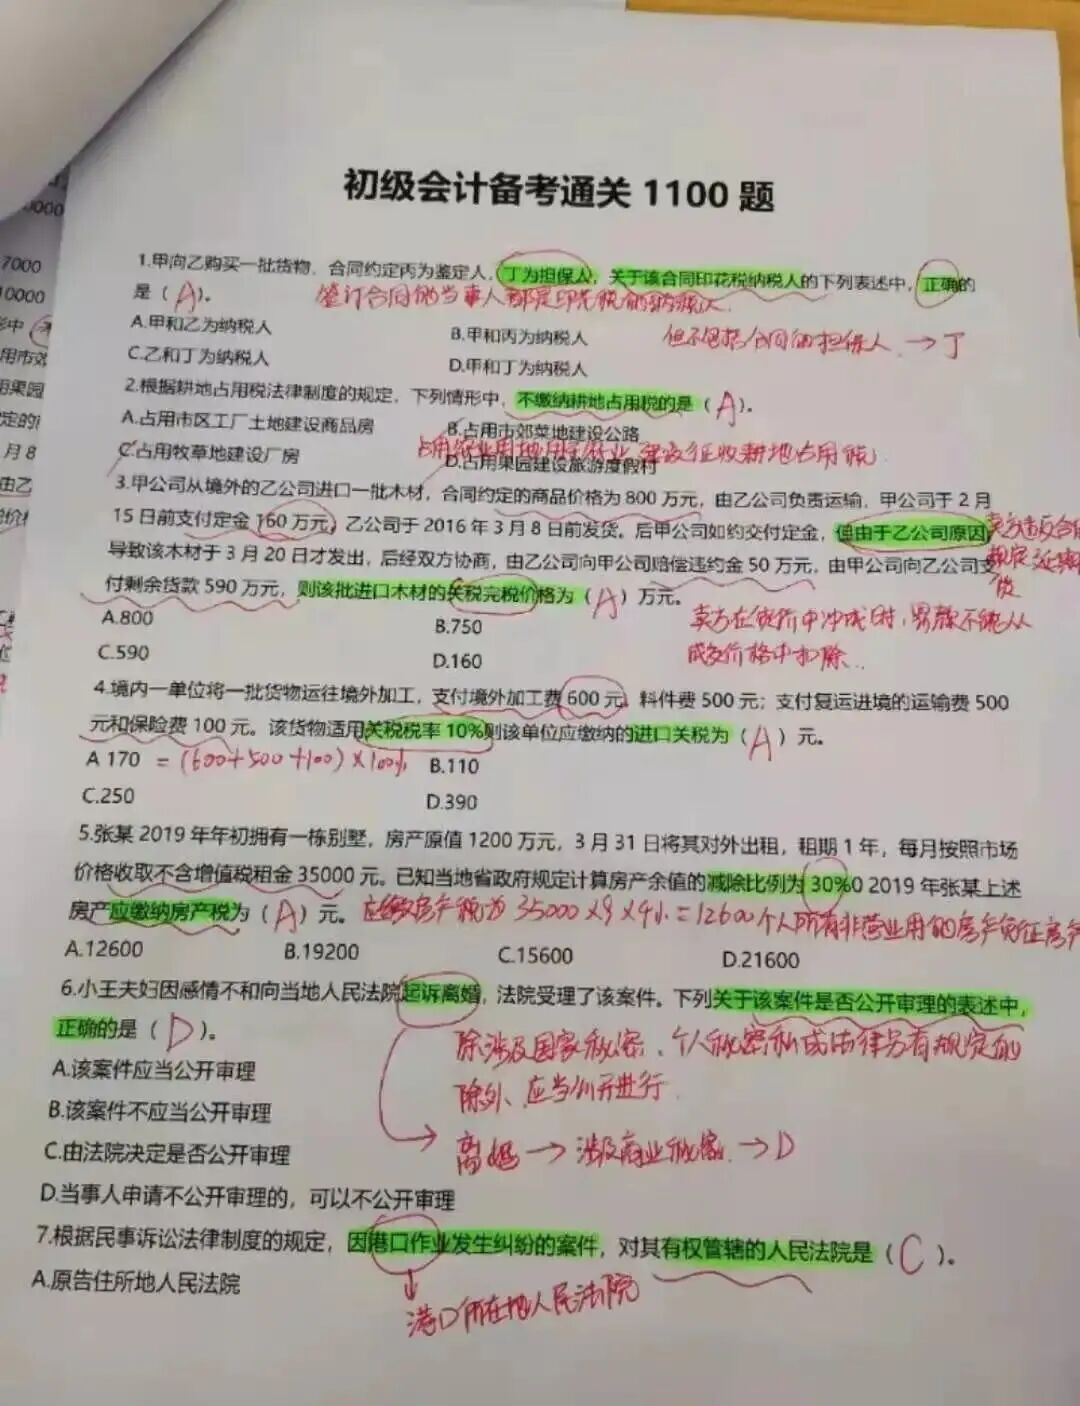 初级会计备考通关 1100 题
1.甲向乙购买一批货物，合同约定丙为鉴定人，丁为担保人，关于该合同印花税纳税人的下列表述中，正确的
是（A）。
签订合同的当事人都是印花税的纳税人
A.甲和乙为纳税人
B.甲和丙为纳税人
但不包括合同的担保人 → 丁
C.乙和丁为纳税人
D.甲和丁为纳税人
2.根据耕地占用税法律制度的规定，下列情形中，不缴纳耕地占用税的是（A）。
A.占用市区工厂土地建设商品房
B.占用市郊菜地建设公路
C.占用牧草地建设厂房
D.占用果园建设旅游度假村
征收耕地占用税
3.甲公司从境外的乙公司进口一批木材，合同约定的商品价格为 800 万元，由乙公司负责运输，甲公司于 2 月
15 日前支付定金 160 万元，乙公司于 2016 年 3 月 8 日前发货。后甲公司如约交付定金，但由于乙公司原因
导致该木材于 3 月 20 日才发出，后经双方协商，由乙公司向甲公司赔偿违约金 50 万元，由甲公司向乙公司支
付剩余货款 590 万元，则该批进口木材的关税完税价格为（A）万元。
卖方违反合同
规定延期
货
A.800
B.750
卖方在货价中冲减时，罚款不能从
成交价格中扣除
C.590
D.160
4.境内一单位将一批货物运往境外加工，支付境外加工费 600 元，料件费 500 元；支付复运进境的运输费 500
元和保险费 100 元。该货物适用关税税率 10%则该单位应缴纳的进口关税为（A）元。
A 170 = (600+500+100)×100%
B.110
C.250
D.390
5.张某 2019 年年初拥有一栋别墅，房产原值 1200 万元，3 月 31 日将其对外出租，租期 1 年，每月按照市场
价格收取不含增值税租金 35000 元。已知当地省政府规定计算房产余值的减除比例为 30%0 2019 年张某上述
房产应缴纳房产税为（A）元。应缴房产税为 35000×9×4%=12600 个人所有非营业用的房产免征房产
A.12600
B.19200
C.15600
D.21600
6.小王夫妇因感情不和向当地人民法院起诉离婚，法院受理了该案件。下列关于该案件是否公开审理的表述中，
正确的是（D）。
除涉及国家秘密、个人或法律另有规定的
除外，应当公开进行
A.该案件应当公开审理
B.该案件不应当公开审理
C.由法院决定是否公开审理
离婚 → 涉及商业秘密 → D
D.当事人申请不公开审理的，可以不公开审理
7.根据民事诉讼法律制度的规定，因港口作业发生纠纷的案件，对其有权管辖的人民法院是（C）。
A.原告住所地人民法院
港口所在地人民法院
7000
10000